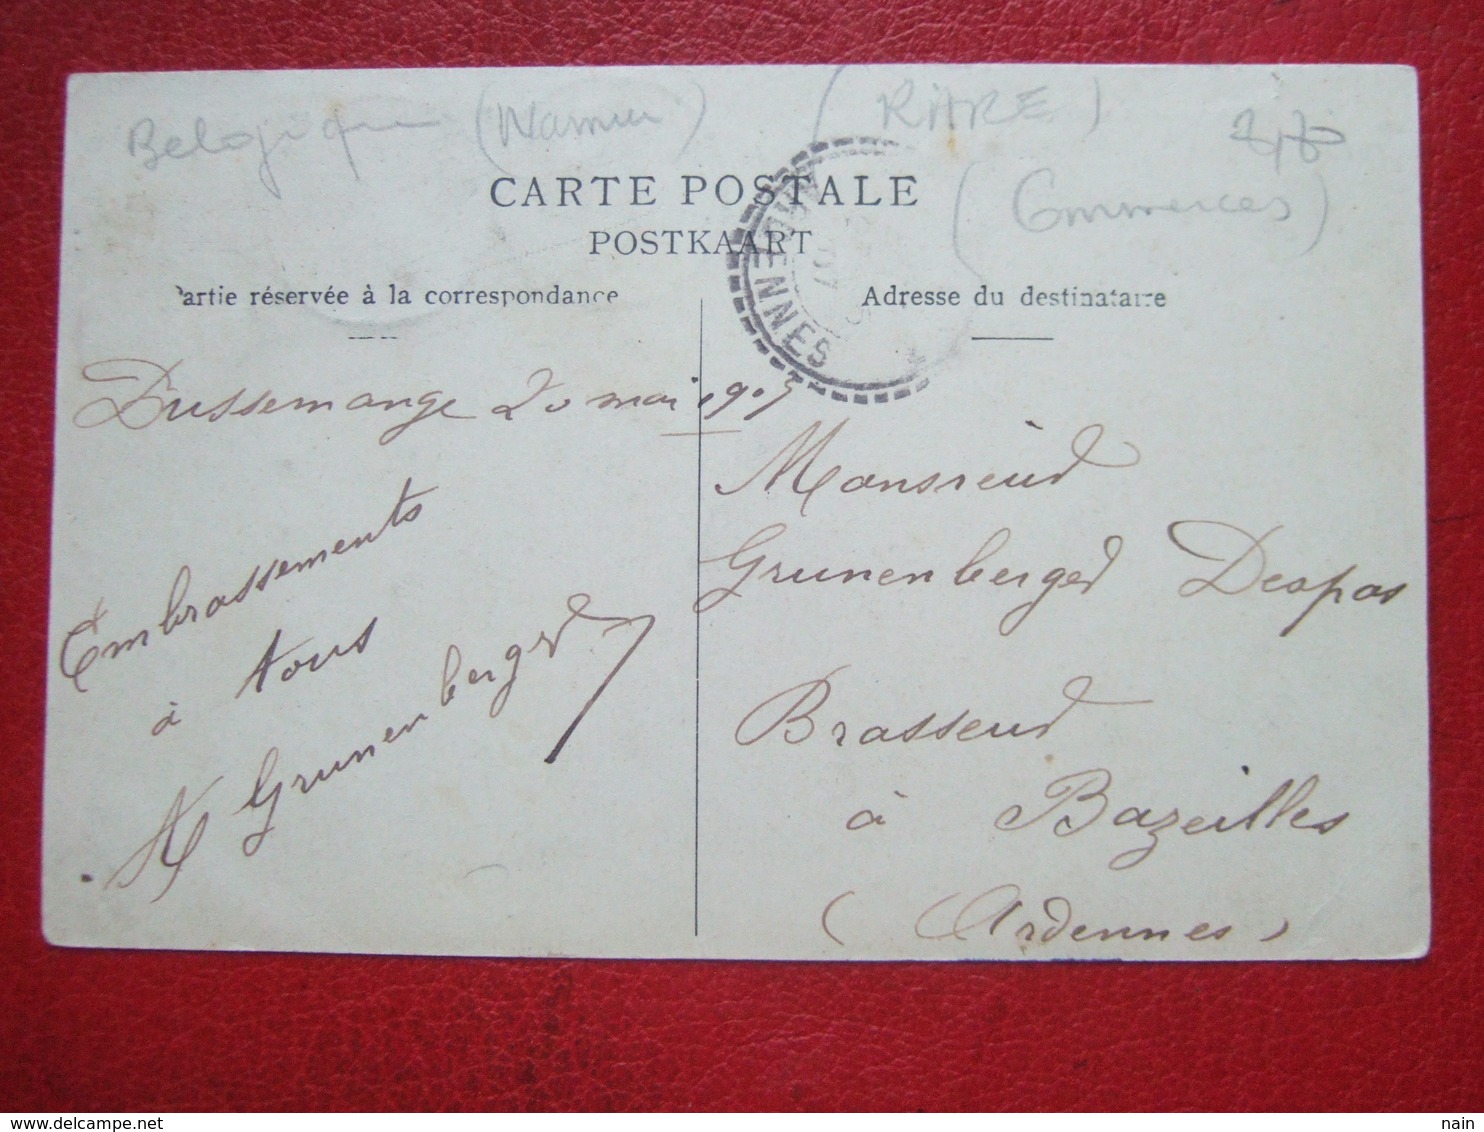 Belgique (Namur) (RARE)
(Commerces)
CARTE POSTALE
POSTKAART
Partie réservée à la correspondance
Adresse du destinataire
ARDENNES
07
Dussemange 20 mai 1907
Embrassements
à tous
A Grunenberger
Monsieur
Grunenberger Despas
Brasseur
à Bazeilles
(Ardennes)
nain